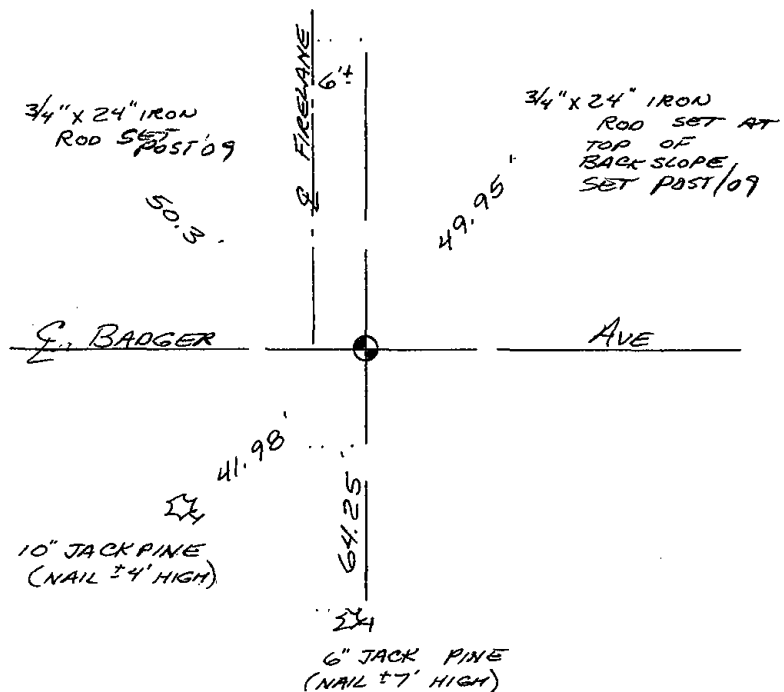 ℄ FIRELANE
6'±
3/4" x 24" IRON
ROD SET
POST '09
50.3'
3/4" x 24" IRON
ROD SET AT
TOP OF
BACK SLOPE
SET POST/09
49.95'
℄ BADGER AVE
41.98'
10" JACK PINE
(NAIL ±4' HIGH)
64.25'
6" JACK PINE
(NAIL ±7' HIGH)